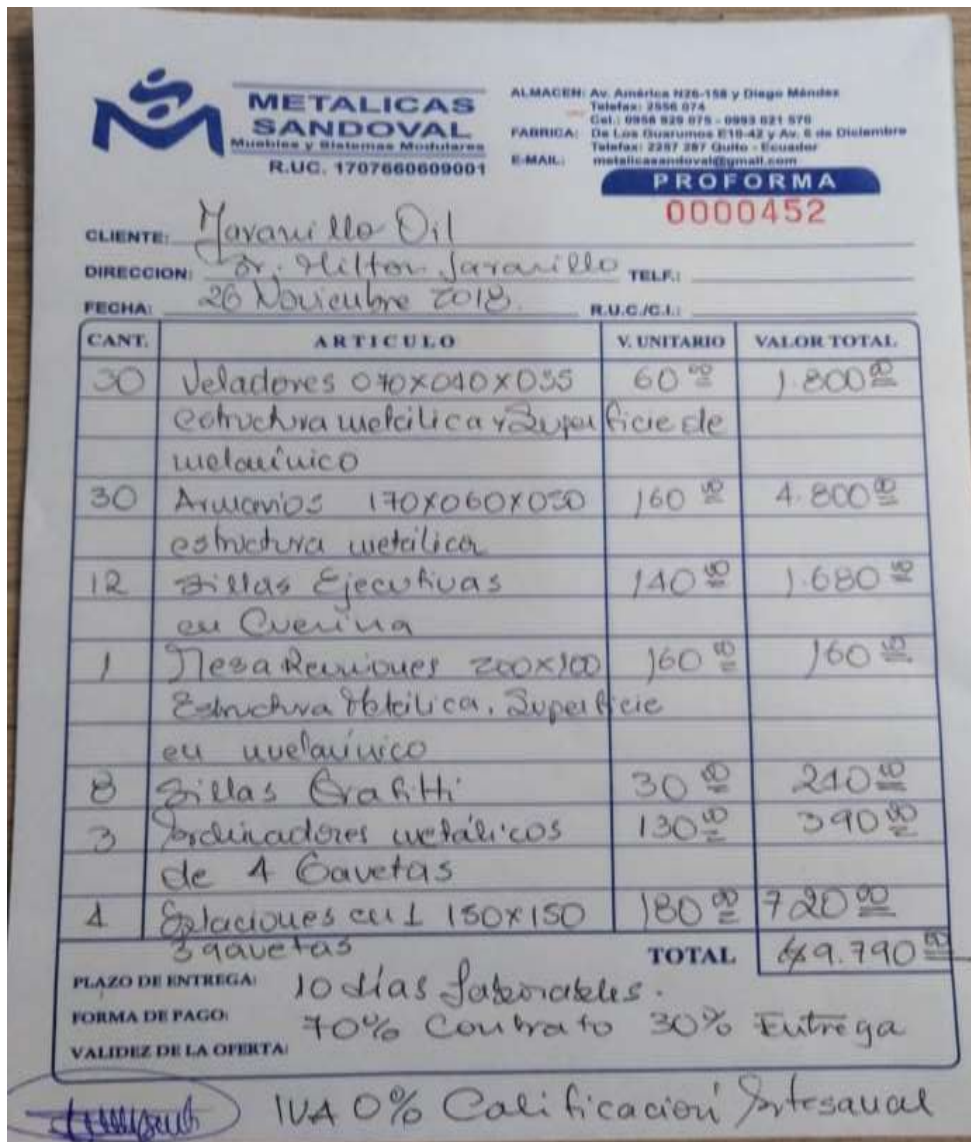 METALICAS
SANDOVAL
Muebles y Sistemas Modulares
R.UC. 1707660609001
ALMACEN: Av. América N26-158 y Diego Méndez
Telefax: 2556 074
Cel.: 0958 929 075 - 0993 021 570
FABRICA: De Los Guarumos E10-42 y Av. 6 de Diciembre
Telefax: 2257 287 Quito - Ecuador
E-MAIL: metalicassandoval@gmail.com
PROFORMA
0000452
CLIENTE: Jaramillo Oil
DIRECCION: Sr. Milton Jaramillo TELF.:
FECHA: 26 Noviembre 2018. R.U.C./C.I.:
CANT. ARTICULO V. UNITARIO VALOR TOTAL
30 Veladores 040X040X055 60 00 1.800 00
estructura metálica y Superficie de
melamínico
30 Armarios 170X060X050 160 00 4.800 00
estructura metálica
12 Sillas Ejecutivas 140 00 1.680 00
en Cuerina
1 Mesa Reuniones 200X100 160 00 160 00
Estructura Metálica. Superficie
en melamínico
8 Sillas Grafitti 30 00 240 00
3 Archivadores metálicos 130 00 390 00
de 4 Gavetas
4 Estaciones en L 150X150 180 00 720 00
3 gavetas
TOTAL $9.790 00
PLAZO DE ENTREGA: 10 días laborables.
FORMA DE PAGO: 70% Contrato 30% Entrega
VALIDEZ DE LA OFERTA:
IVA 0% Calificación Artesanal